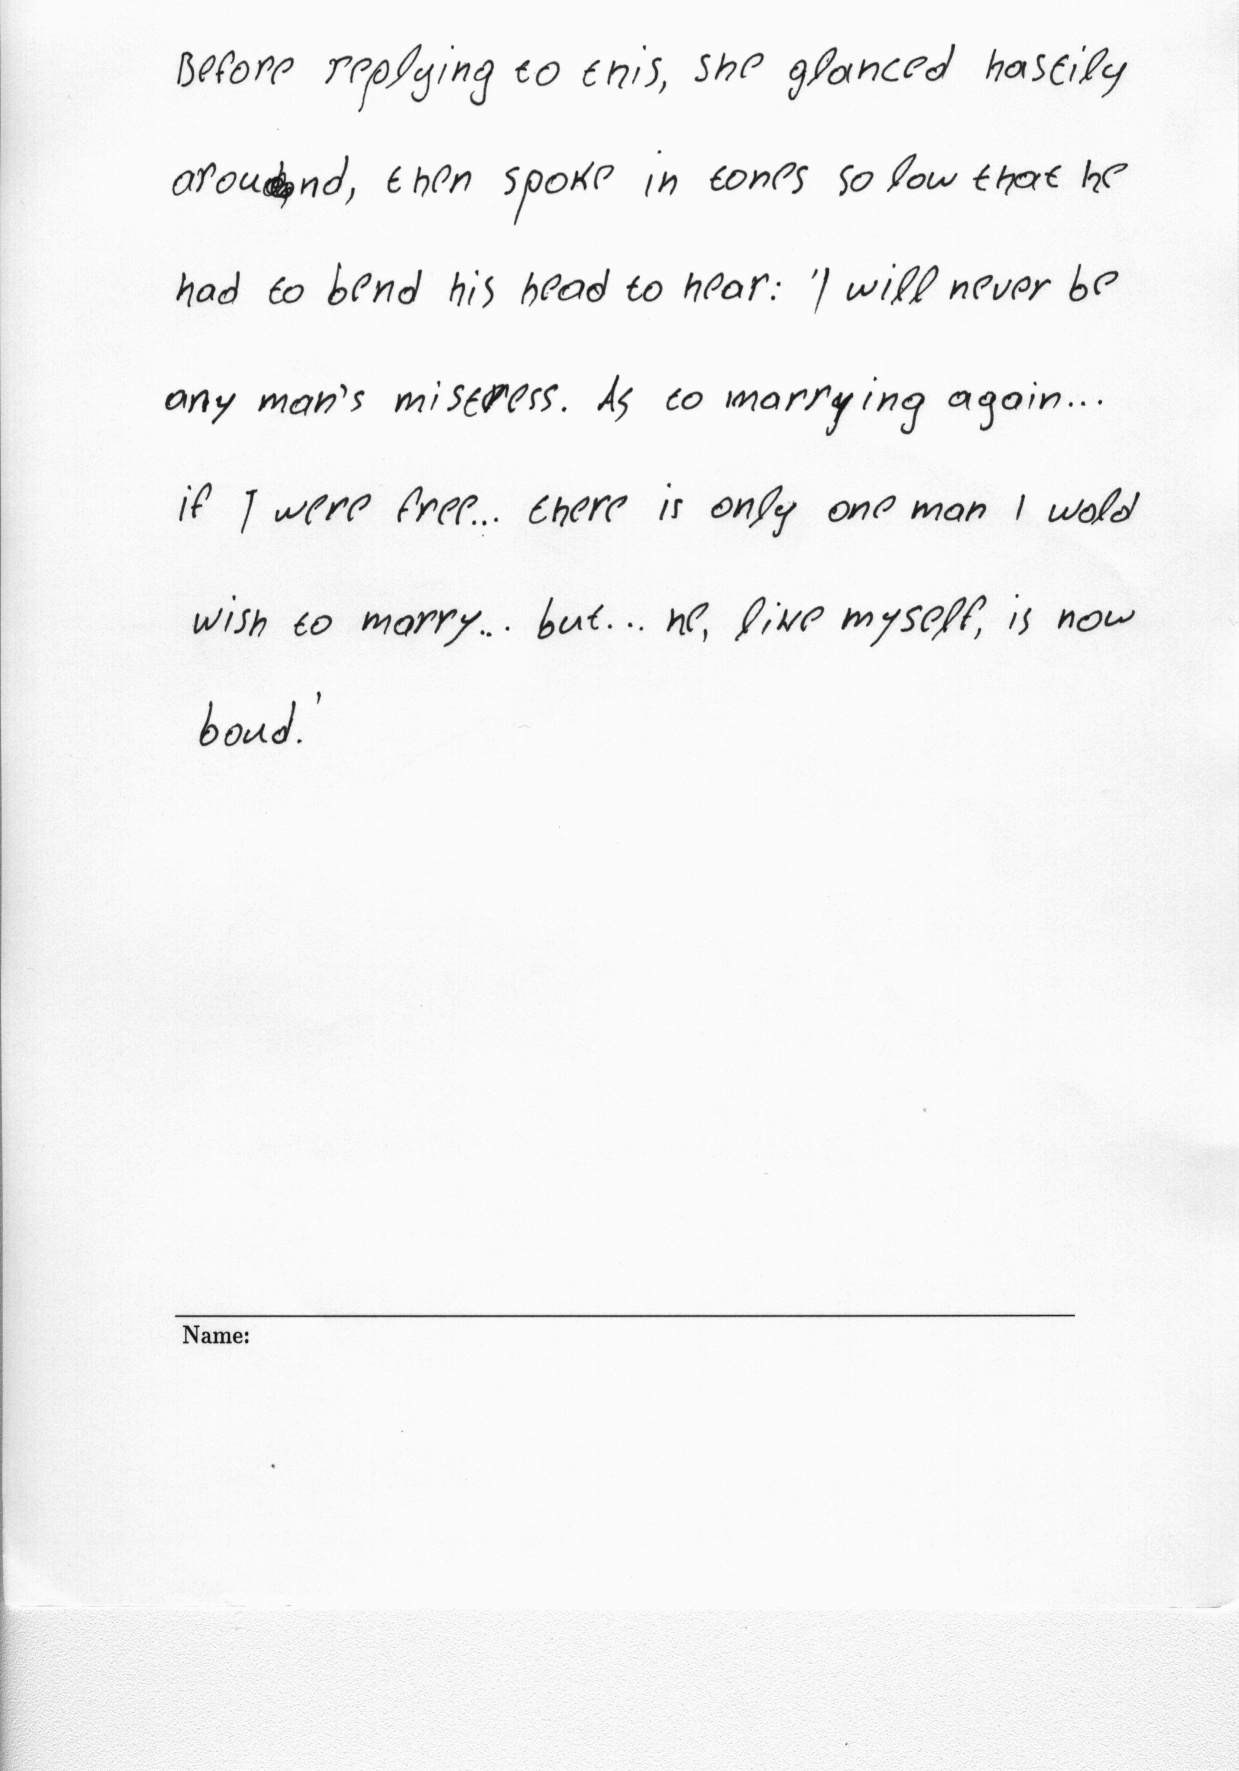 Before replying to this, she glanced hastily
around, then spoke in tones so low that he
had to bend his head to hear: 'I will never be
any man's mistress. As to marrying again...
if I were free... there is only one man I wold
wish to marry... but... he, like myself, is now
boud.'
Name: